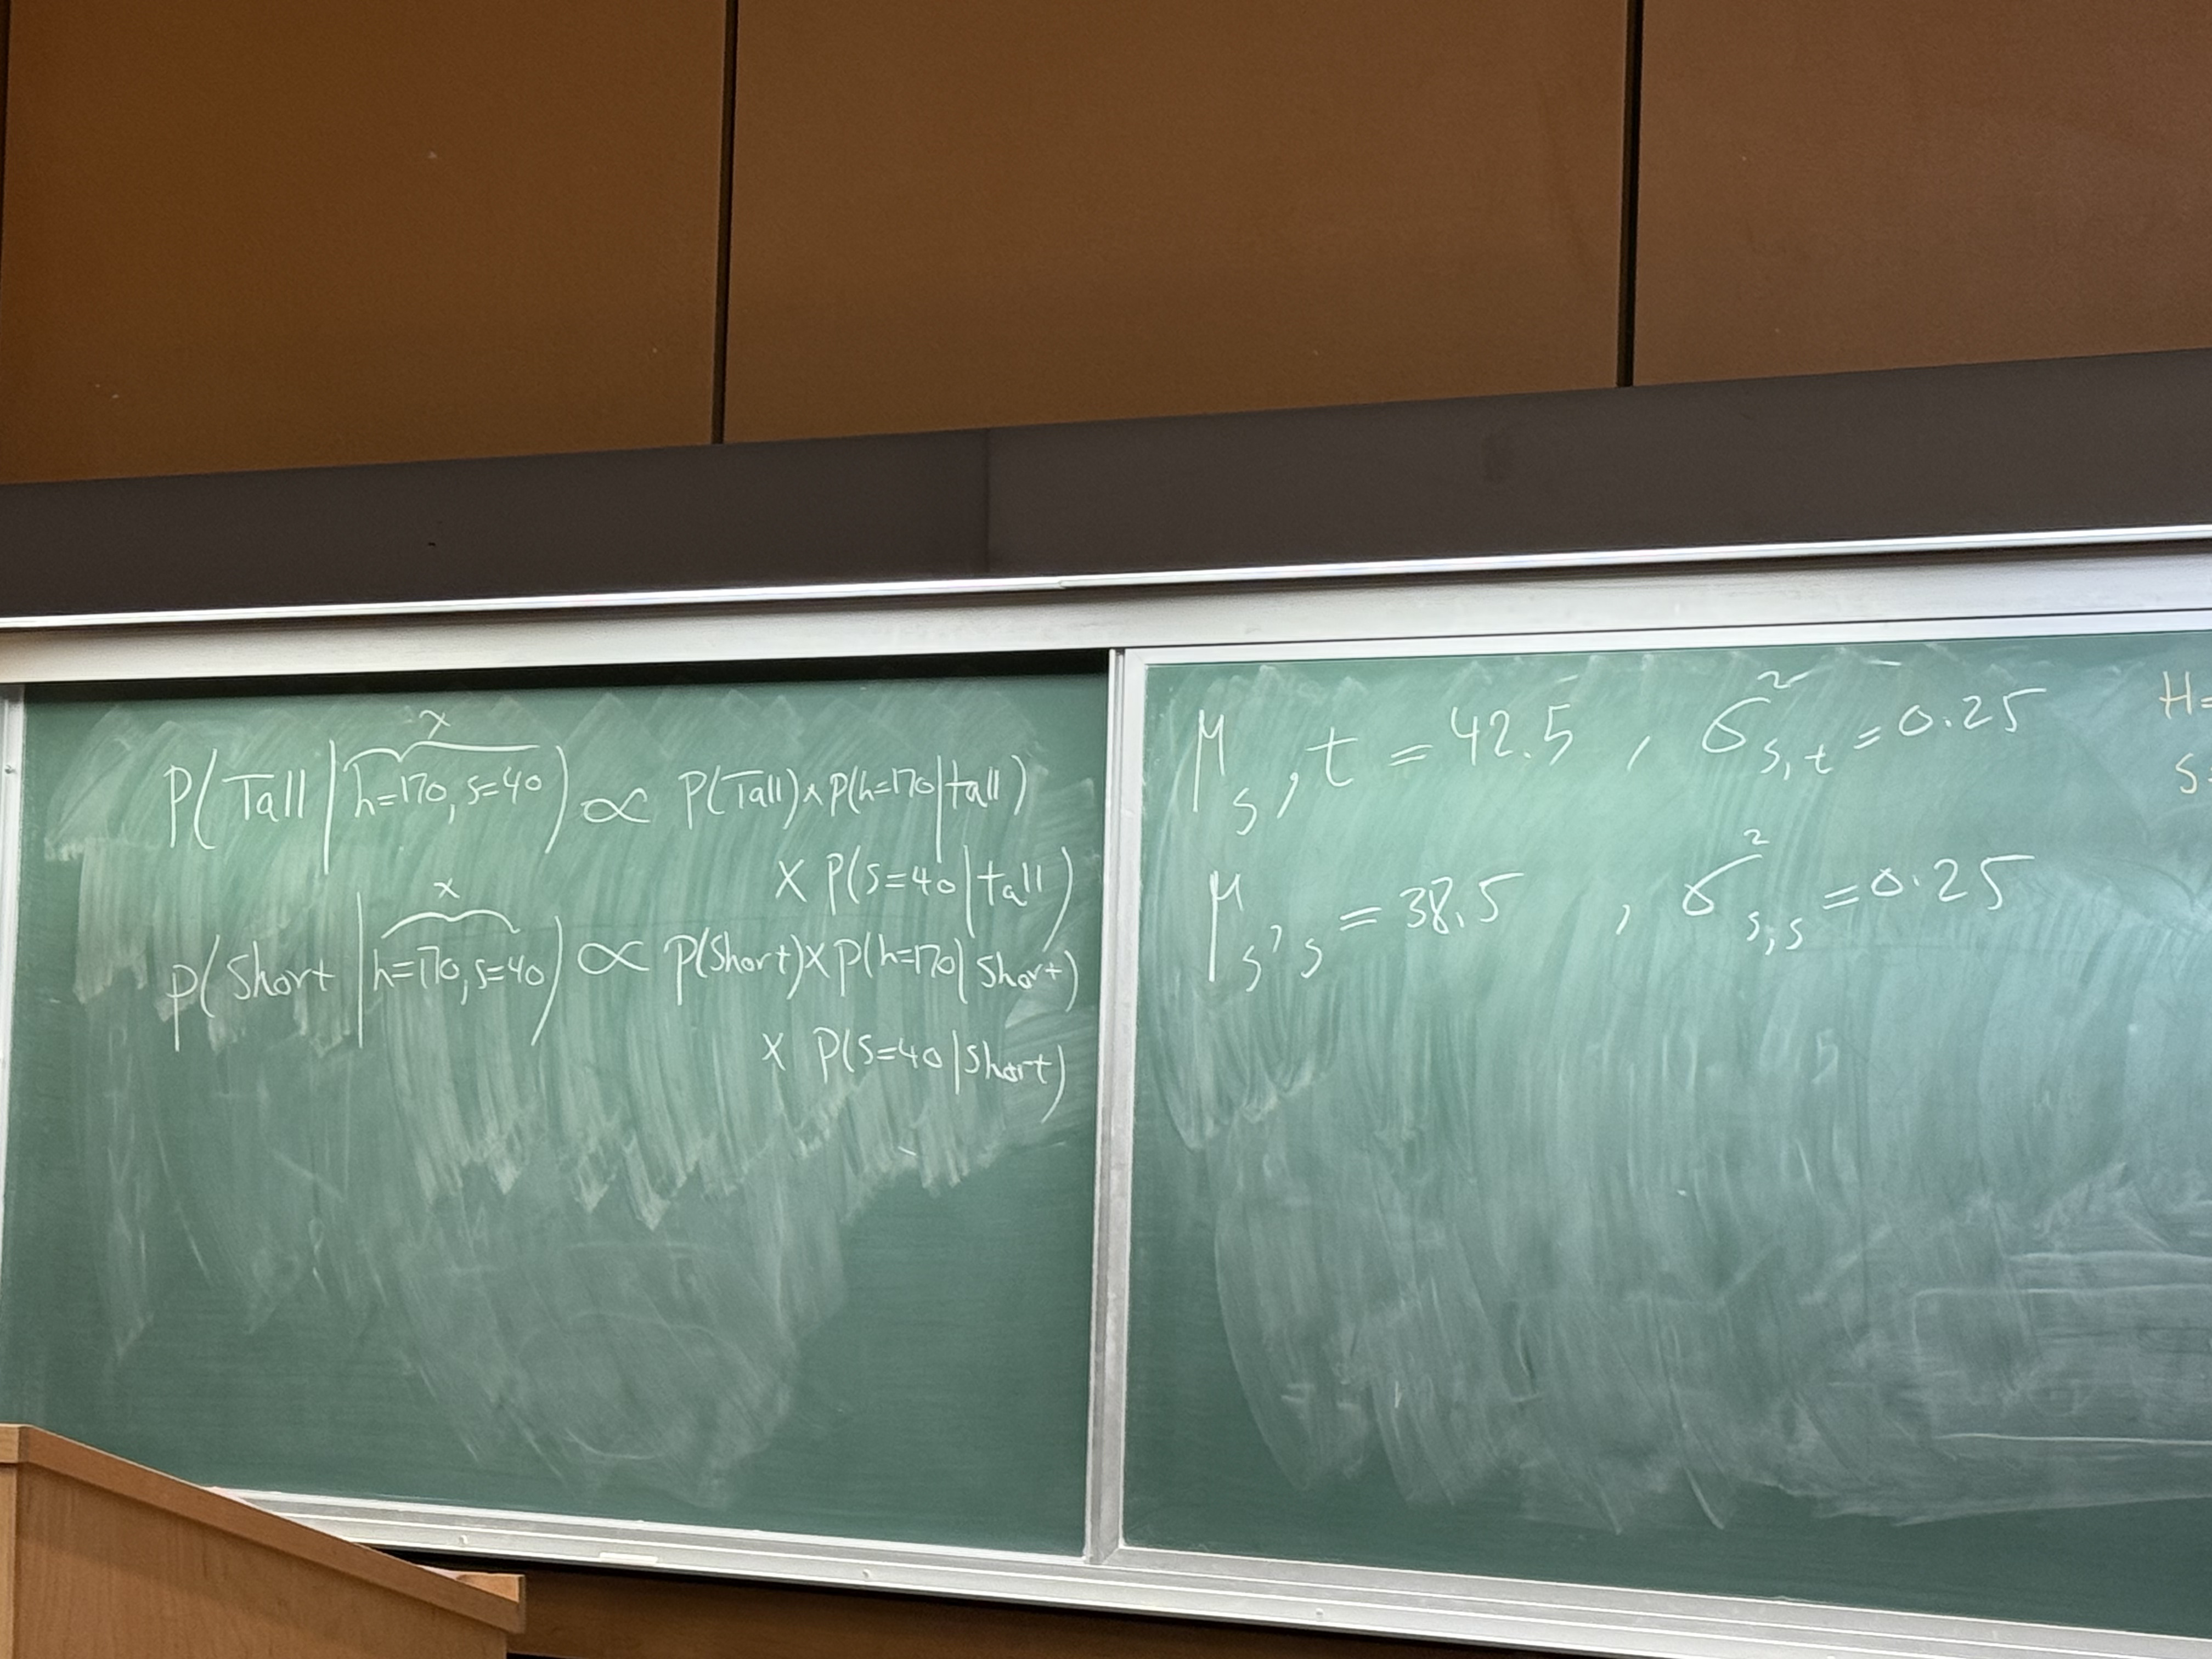 x
P(Tall | h=170, s=40) ∝ P(Tall) × P(h=170|tall)
× P(s=40|tall)
x
P(Short | h=170, s=40) ∝ P(Short) × P(h=170|Short)
× P(s=40|Short)
μ_s,t = 42.5 , σ²_s,t = 0.25
μ_s,s = 38.5 , σ²_s,s = 0.25
H=
S=